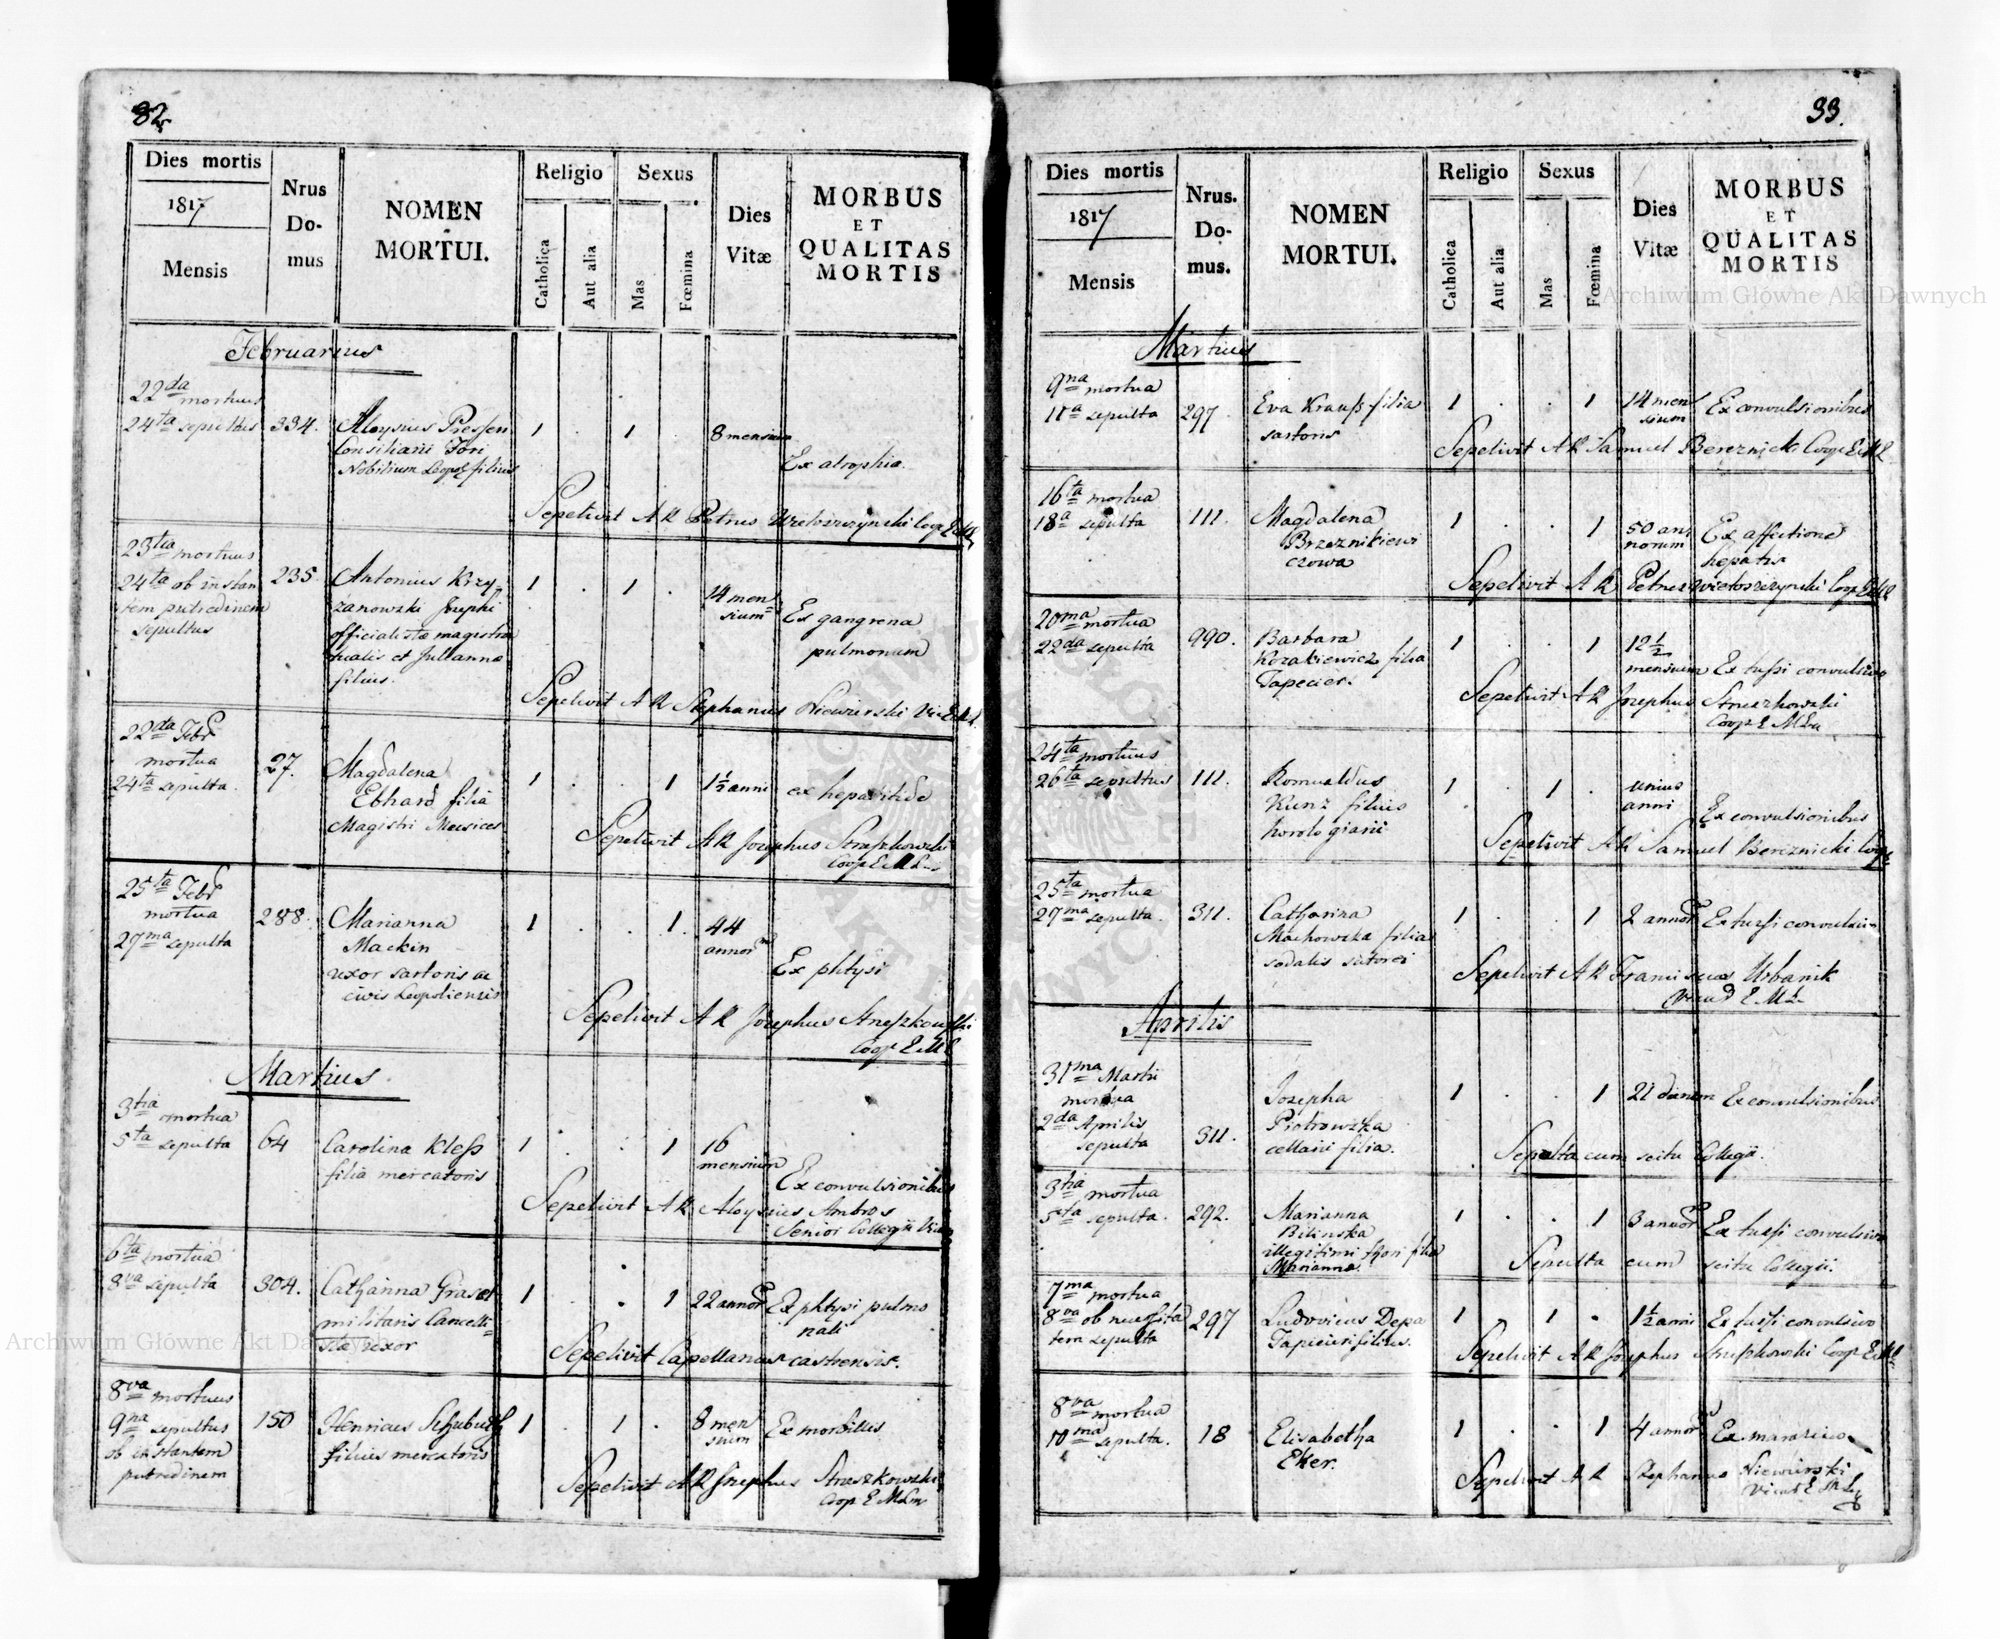 82.
Dies mortis
1817
Mensis
Nrus
Do-
mus
NOMEN
MORTUI.
Religio
Catholica
Aut alia
Sexus
Mas
Fœmina
Dies
Vitæ
MORBUS
ET
QUALITAS
MORTIS
Februarius
22da mortuus
24ta sepultus 334. Aloysius Pressen 1 . 1 . 8 mensium
Consiliarii Fori
Nobilium Leopol filius
Ex atrophia.
Sepelivit A R Petrus
23tia mortuus
24ta ob instan 235. Antonius Krzy- 1 . 1 . 14 men
tem putredinem zanowski Josephi sium Ex gangrena
sepultus officialistæ magistra pulmonum
tualis et Julianna
filius.
Sepelivit A R Stephanus Niewiarski
22da Febr
mortua
24ta sepulta. 27. Magdalena 1 . . 1 1½ anni ex hepatitide
Ebhard filia
Magistri Musices
Sepelivit A R Josephus Straszkowski
Coop E M L
25ta Febr
mortua
27ma sepulta 288. Marianna 1 . . 1. 44
Mackin annor
uxor sartoris ac Ex phtysi
civis Leopoliensis
Sepelivit A R Josephus
Coop E M L
Martius
3tia mortua
5ta sepulta 64 Carolina Kless 1 . . 1 16
filia mercatoris mensium
Ex convulsionibus
Sepelivit A R Aloysius Ambros
Senior Collegii
6ta mortua
8va sepulta 304. Catharina 1 . . 1 22 annor Ex phtysi pulmo
militaris Cancelli- nali
stæ uxor
Sepelivit Capellanus castrensis.
8va mortuus
9na sepultus 150 Henricus 1 . 1 . 8 men Ex morbillis
ob instantem filius mercatoris sium
putredinem
Sepelivit A R Josephus Straszkowski
Coop E M L
33.
Dies mortis
1817
Mensis
Nrus.
Do-
mus.
NOMEN
MORTUI.
Religio
Catholica
Aut alia
Sexus
Mas
Fœmina
Dies
Vitæ
MORBUS
ET
QUALITAS
MORTIS
Martius
9na mortua
11a sepulta 297. Eva Krauss filia 1 . . 1 14 men Ex convulsionibus
sartoris sium
Sepelivit A R Samuel Bereznicki Coop E M L
16ta mortua
18a sepulta 111. Magdalena 1 . . 1 50 an Ex affectione
Brzeznikiewi norum hepatis
czowa
Sepelivit A R Petrus
20ma mortua
22da sepulta 990. Barbara 1 . . 1 12½
Kozakiewicz filia mensium Ex tussi convulsivo
Tapecier.
Sepelivit A R Josephus
Coop E M L
24ta mortuus
26ta sepultus 111. Romualdus 1 . 1 . unius
Kunz filius anni
horologiarii Ex convulsionibus
Sepelivit A R Samuel Bereznicki
25ta mortua
27ma sepulta. 311. Catharina 1 . . 1 2 annor Ex tussi convulsiv
Machowska filia
sodalis sutorei
Sepelivit A R Franciscus Urbanik
E M L
Aprilis
31ma Martii
mortua Josepha 1 . . 1 21 dierum Ex convulsionibus
2da Aprilis Piotrowska
sepulta 311. cellarii filia.
Sepulta cum scitu Collegii.
3tia mortua
5ta sepulta. 292. Marianna 1 . . 1 3 annor Ex tussi convulsivo
Bilinska
illegitimi thori filia
Marianna.
Sepulta cum scitu Collegii.
7ma mortua
8va ob necessita 297 Ludovicus Depa 1 1 . 1½ anni Ex tussi convulsivo
tem sepulta filius.
Sepelivit A R Josephus
8va mortua
10ma sepulta. 18 Elisabetha 1 . . 1 4 annor
Eker.
Sepelivit A R Stephanus Niewiarski
Archiwum Główne Akt Dawnych
Archiwum Główne Akt Dawnych